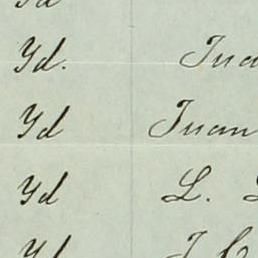 Yd
Yd. Jua
Yd Juan
Yd L.
Yd J C